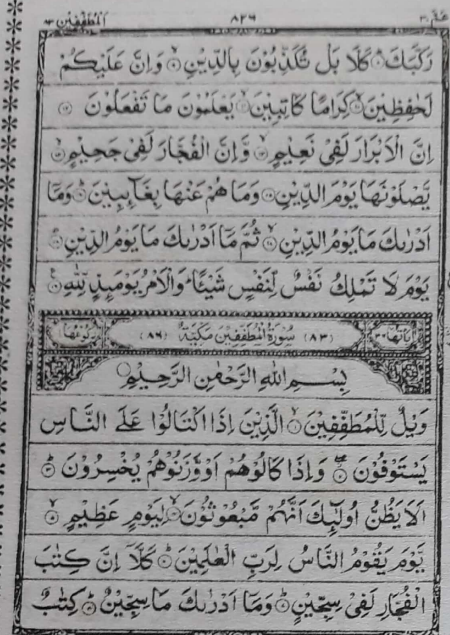 المطففين ٨٣ ٨٢٦ عم ٣٠
رَكَّبَكَ ۞ كَلَّا بَلْ تُكَذِّبُوْنَ بِالدِّيْنِ ۞ وَاِنَّ عَلَيْكُمْ
لَحٰفِظِيْنَ ۞ كِرَامًا كَاتِبِيْنَ ۞ يَعْلَمُوْنَ مَا تَفْعَلُوْنَ ۞
اِنَّ الْاَبْرَارَ لَفِيْ نَعِيْمٍ ۞ وَّاِنَّ الْفُجَّارَ لَفِيْ جَحِيْمٍ ۞
يَّصْلَوْنَهَا يَوْمَ الدِّيْنِ ۞ وَمَا هُمْ عَنْهَا بِغَآئِبِيْنَ ۞ وَمَآ
اَدْرٰىكَ مَا يَوْمُ الدِّيْنِ ۞ ثُمَّ مَآ اَدْرٰىكَ مَا يَوْمُ الدِّيْنِ ۞
يَوْمَ لَا تَمْلِكُ نَفْسٌ لِّنَفْسٍ شَيْئًا ۖ وَالْاَمْرُ يَوْمَئِذٍ لِّلّٰهِ ۞
اٰيَاتُهَا ٣٦ (٨٣) سُوْرَةُ الْمُطَفِّفِيْنَ مَكِّيَّةٌ (٨٦) رُكُوْعُهَا
بِسْمِ اللهِ الرَّحْمٰنِ الرَّحِيْمِ ۞
وَيْلٌ لِّلْمُطَفِّفِيْنَ ۞ الَّذِيْنَ اِذَا اكْتَالُوْا عَلَى النَّاسِ
يَسْتَوْفُوْنَ ۞ وَاِذَا كَالُوْهُمْ اَوْ وَّزَنُوْهُمْ يُخْسِرُوْنَ ۞
اَلَا يَظُنُّ اُولٰٓئِكَ اَنَّهُمْ مَّبْعُوْثُوْنَ ۞ لِيَوْمٍ عَظِيْمٍ ۞
يَّوْمَ يَقُوْمُ النَّاسُ لِرَبِّ الْعٰلَمِيْنَ ۞ كَلَّآ اِنَّ كِتٰبَ
الْفُجَّارِ لَفِيْ سِجِّيْنٍ ۞ وَمَآ اَدْرٰىكَ مَا سِجِّيْنٌ ۞ كِتٰبٌ